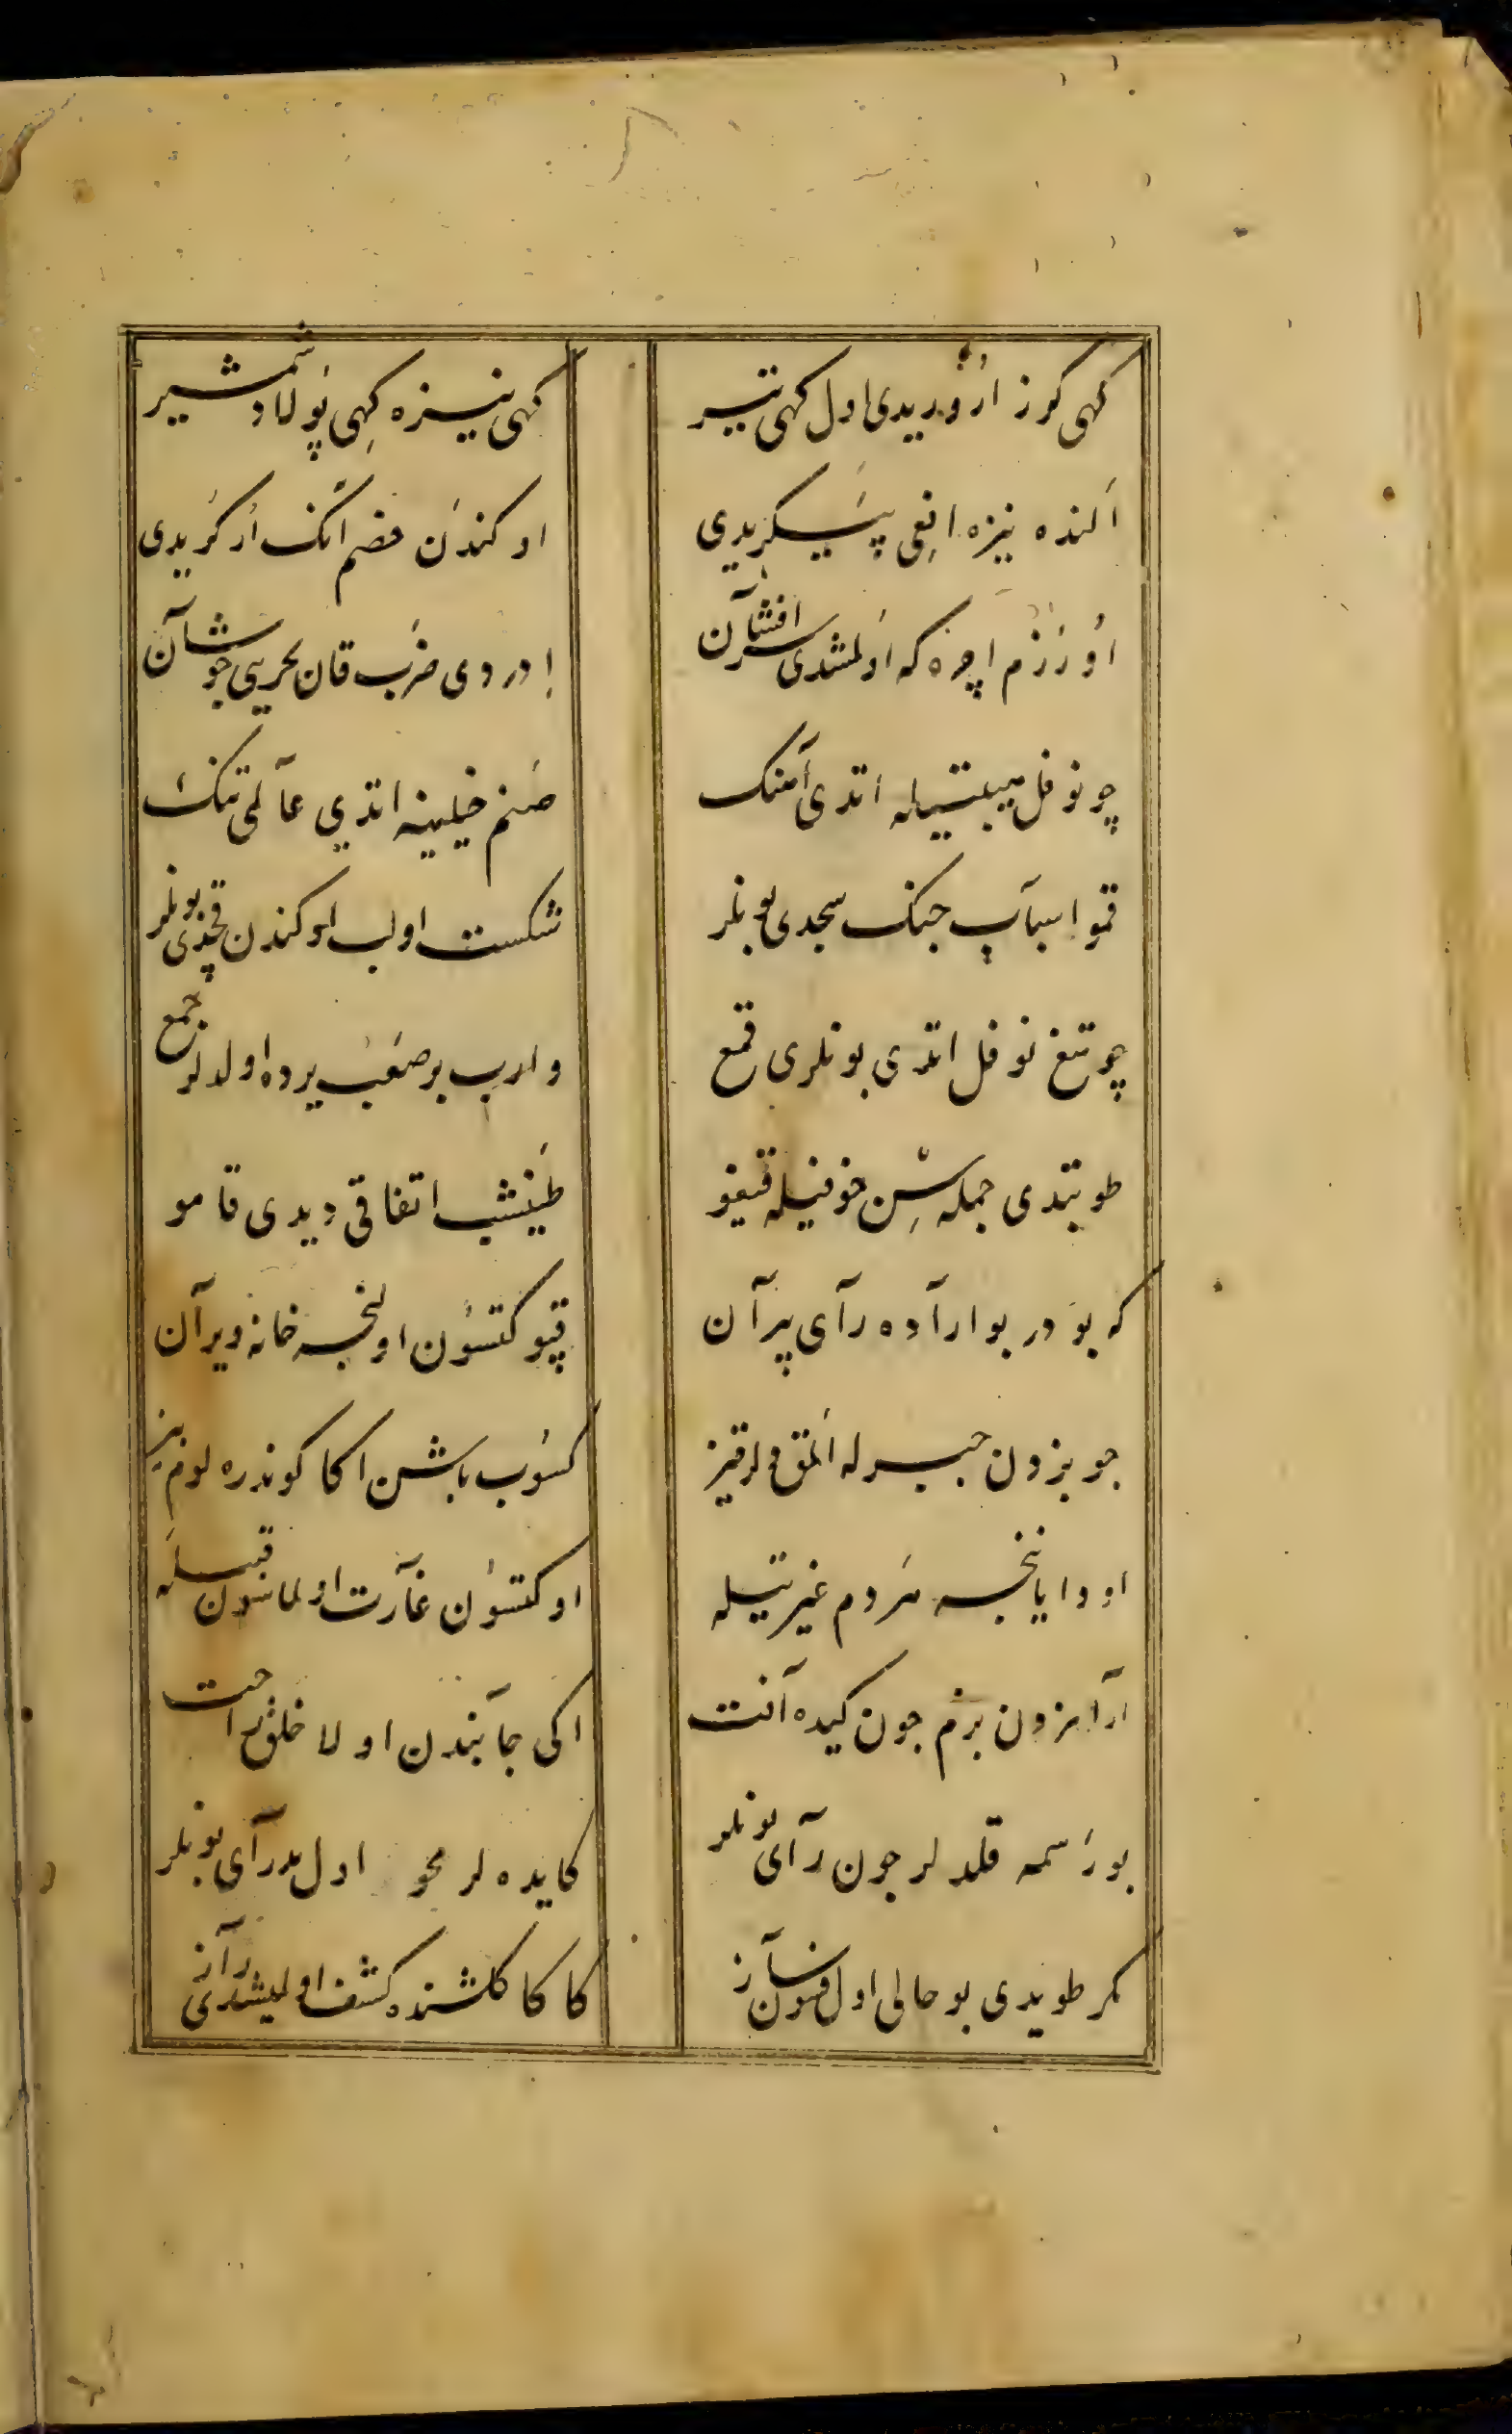 کهی کورز اُرُوریدی اول کهی تیر کهی نیزه کهِی پُولاد شمشیر
اَلنده نیزه افعِی پَیکریدی اوکندَن خصم انک اُرکَریدی
اُورَزم اچره که اوُلمشدی سرافشآن اِدردی ضرَب قان بحریی جوشآن
چو نوفل هیبتیله اتدی آهنک صَنم خیلینه اتدی عآلمی تنک
قمو اسبآب جنک سجدی بونلر شکست اولب اوکندن قچدی بونلر
چو تیغ نوفل اتدی بونلری قمع وارب بر صَعب یرده اولدلر جمع
طوتدی جمله سِن خوفیله قیغو طَنیشب اتفاقی دیدی قامو
که بوُدر بو ارآده رآی پیرآن قیو کتسوُن اولنجه خانه ویرآن
جو بزدن جبرله اَلمق دلر قیز کسوُب باشن اکا کوندره لوم بز
اودا یاننجه مَردم غیرتیله اوکتسوُن غآرت اولماسون قبیله
ارآمزدن بزم جون کیده آفت اکی جآنبدن اولا خلق راحت
بو رَسمه قلدلر جون رآی بونلر کایده لر محو اول بدرآی بونلر
مکر طویدی بو حالی اول فسونسآز کا کا کلشنده کشف اولمیشدی رآز